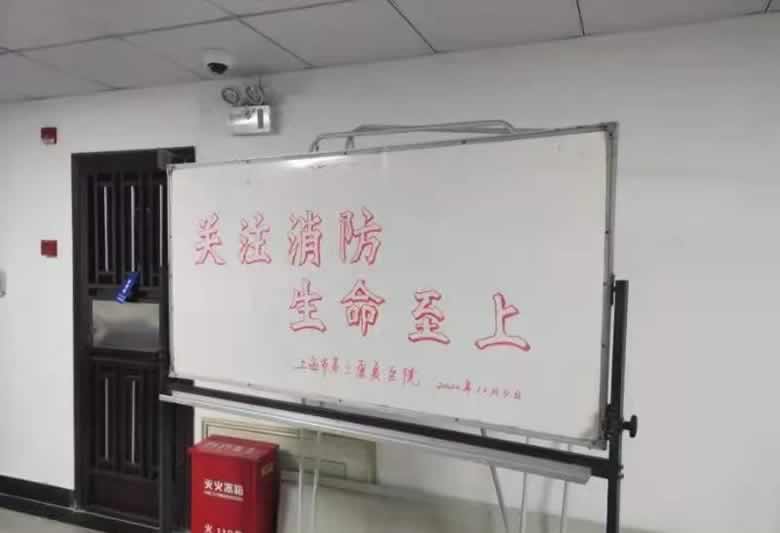 关注消防
生命至上
上海市第三康复医院 2020年11月9日
灭火器箱
火119